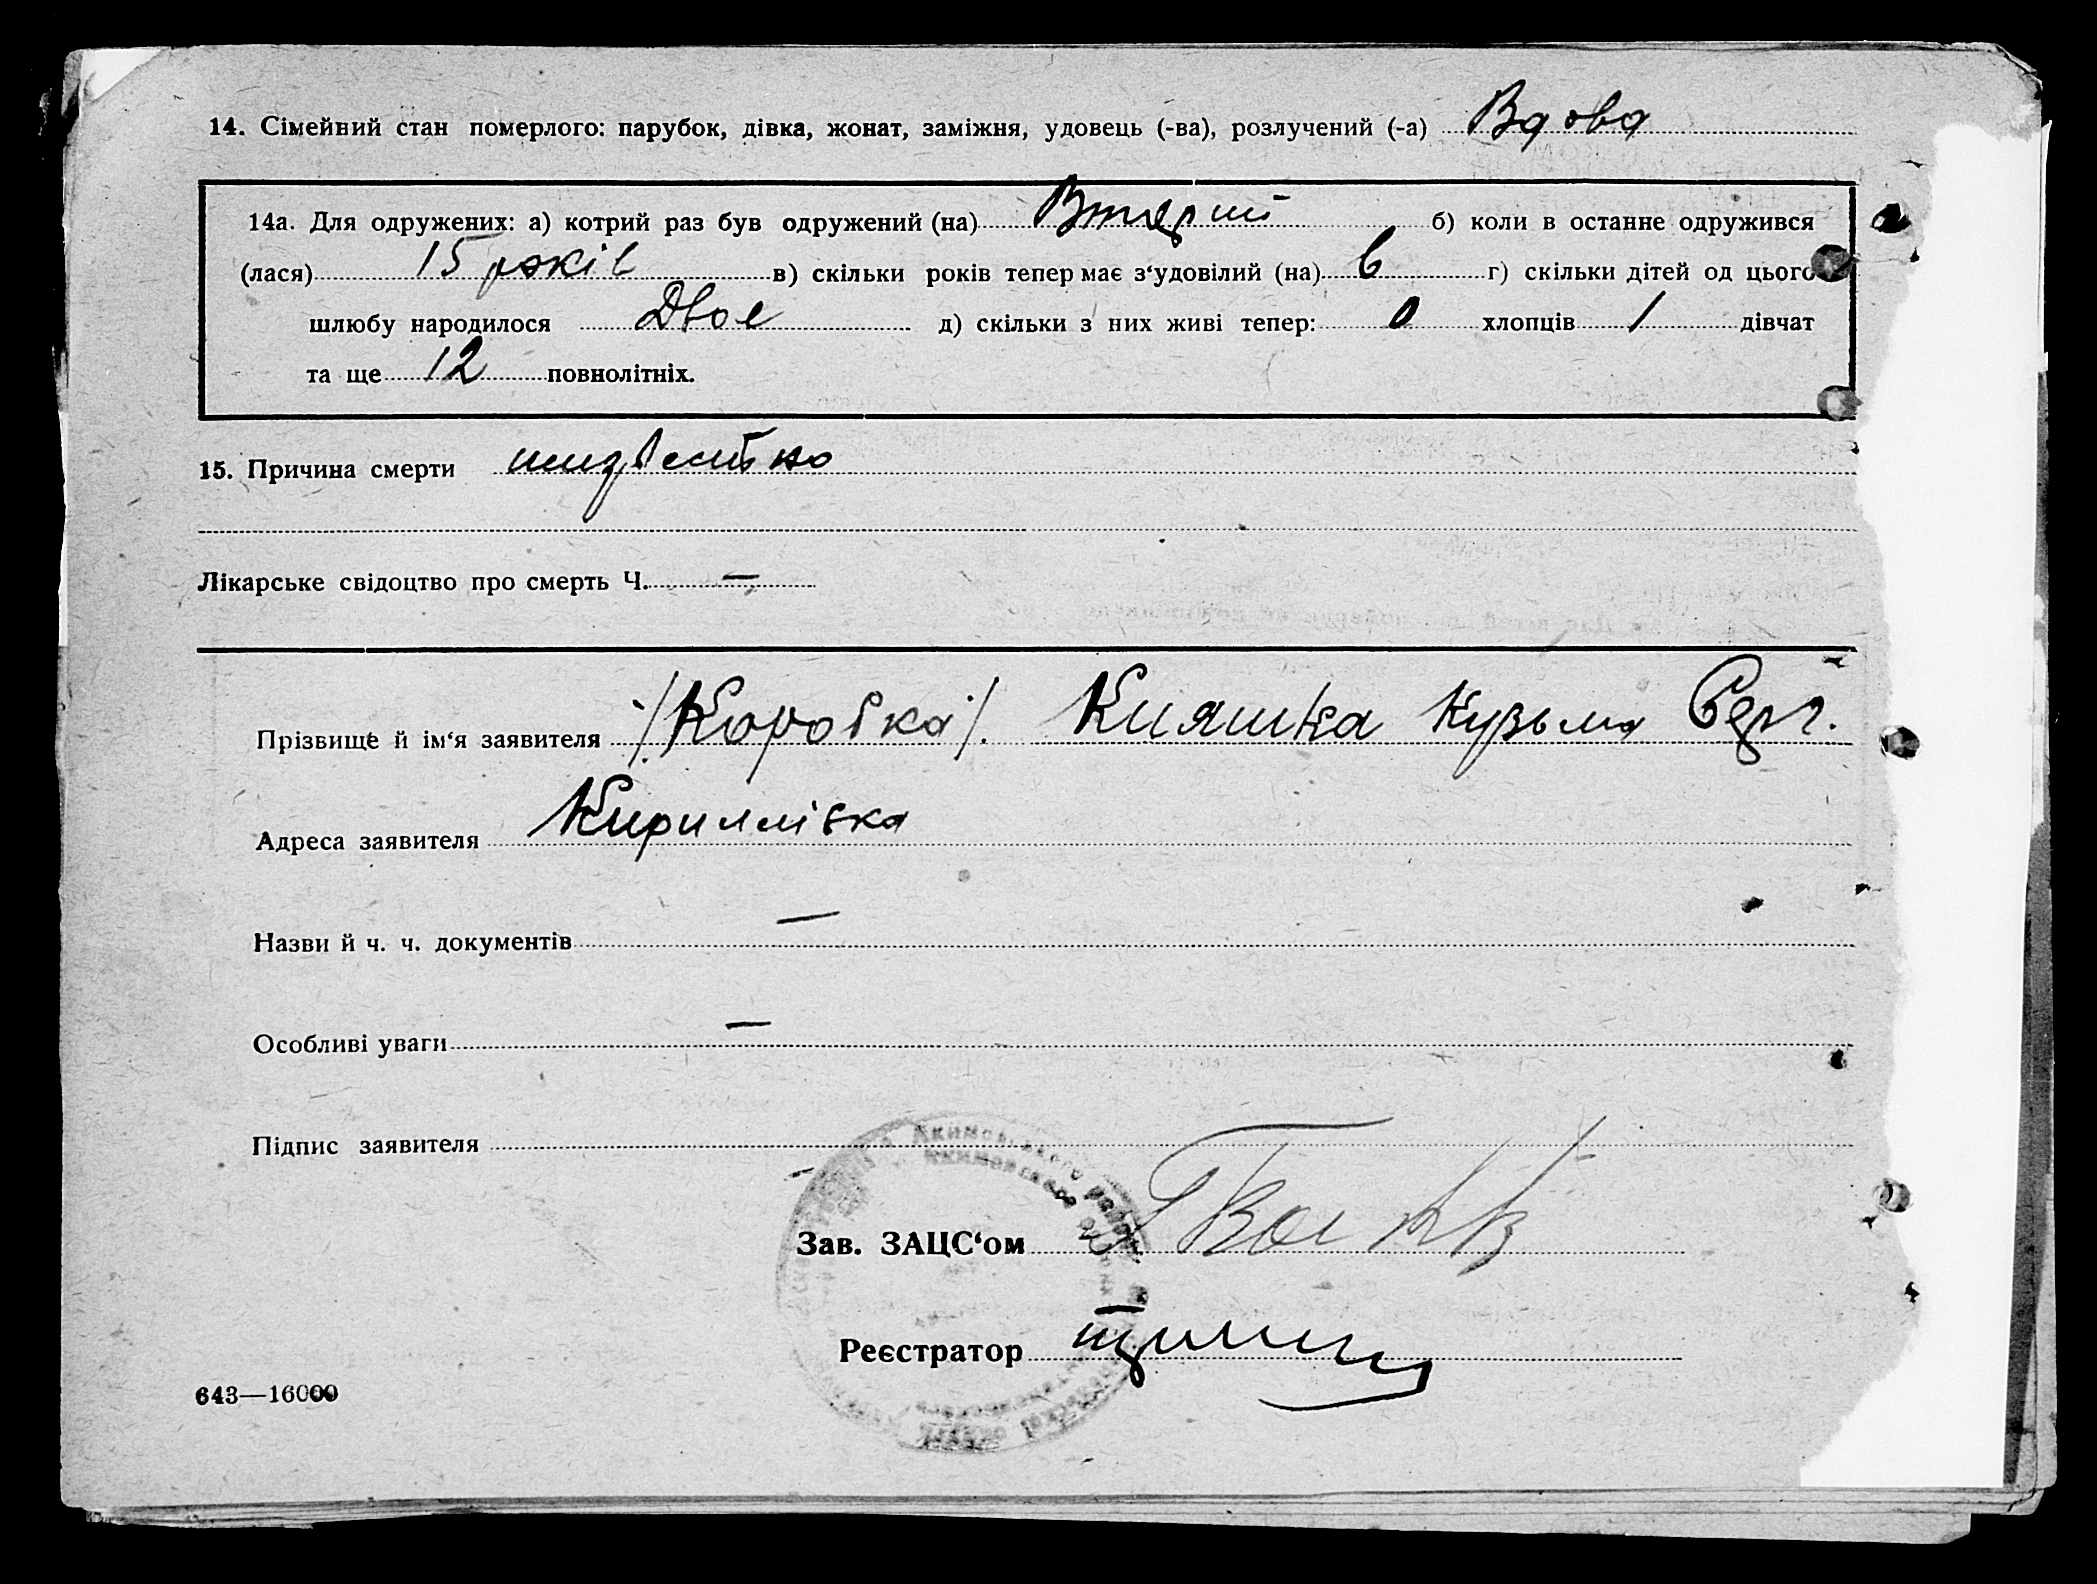 14. Сімейний стан померлого: парубок, дівка, жонат, заміжня, удовець (-ва), розлучений (-а) Вдова
14а. Для одружених: а) котрий раз був одружений (на) б) коли в останне одружився
(лася) 15 років в) скільки років тепер має з‘удовілий (на) 6 г) скільки дітей од цього
шлюбу народилося Двое д) скільки з них живі тепер: 0 хлопців 1 дівчат
та ще 12 повнолітніх.
15. Причина смерти
Лікарське свідоцтво про смерть Ч. —
Прізвище й ім‘я заявителя /Коробка/. Кияшка Кузьма Серг.
Адреса заявителя Кириллівка
Назви й ч. ч. документів —
Особливі уваги —
Підпис заявителя
Зав. ЗАЦС‘ом
Реєстратор
643—16000